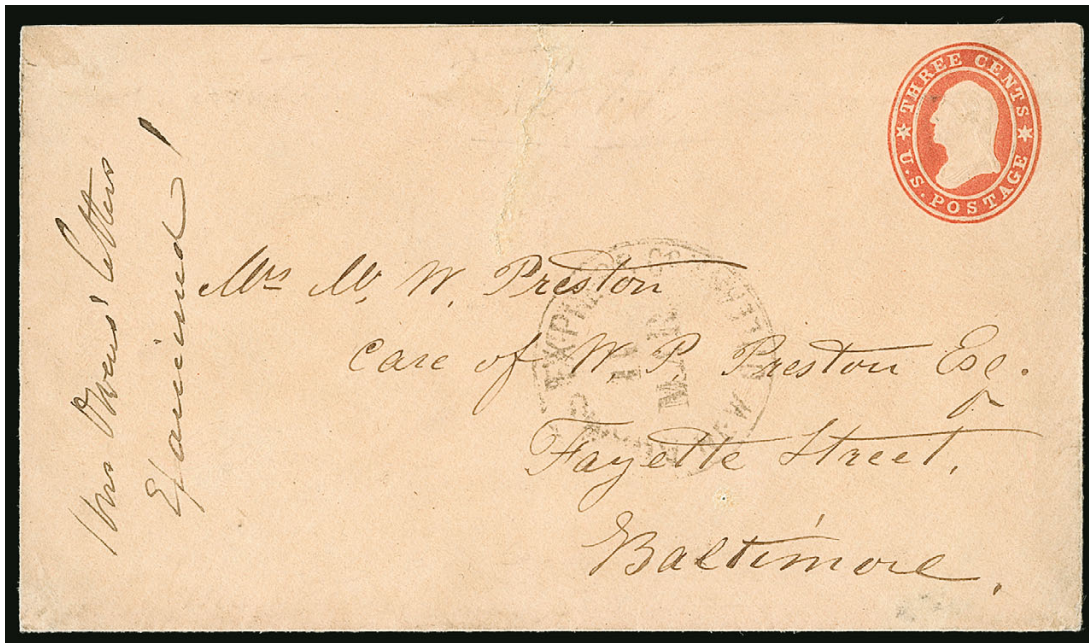 THREE CENTS
U.S. POSTAGE
Mrs Owens' letters
Examined
Mrs M. W. Preston
Care of W. P. Preston Esq.
Fayette Street,
Baltimore.
EXPRESS
MAR
NEW